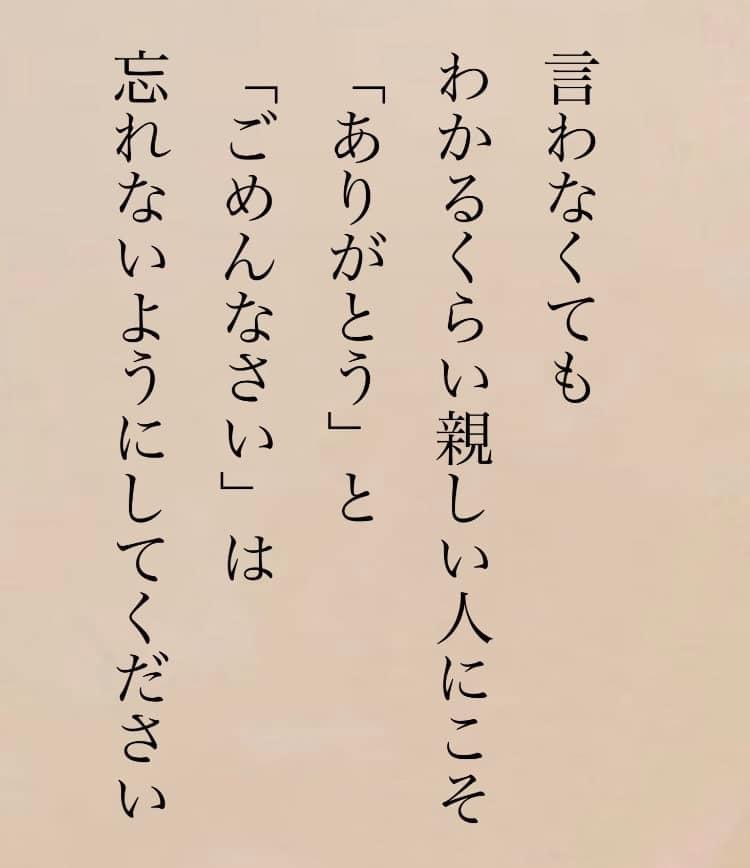 言わなくても
わかるくらい親しい人にこそ
「ありがとう」と
「ごめんなさい」は
忘れないようにしてください